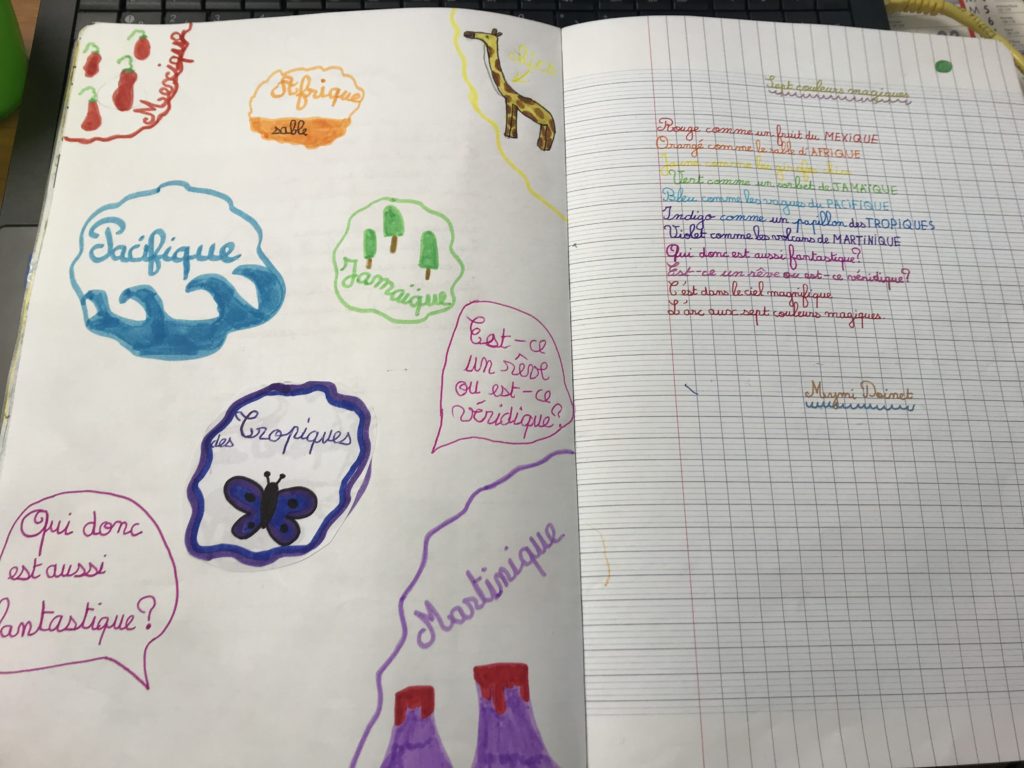 Mexique
Afrique
sable
Pacifique
Jamaïque
Est-ce
un rêve
ou est-ce
véridique?
des Tropiques
Qui donc
est aussi
fantastique?
Martinique
Sept couleurs magiques
Rouge comme un fruit du MEXIQUE
Orange comme le sable d'AFRIQUE
Vert comme un sorbet de JAMAÏQUE
Bleu comme les vagues du PACIFIQUE
Indigo comme un papillon des TROPIQUES
Violet comme les volcans de MARTINIQUE
Qui donc est aussi fantastique?
Est-ce un rêve ou est-ce véridique?
C'est dans le ciel magnifique
L'arc aux sept couleurs magiques.
Mymi Doinet